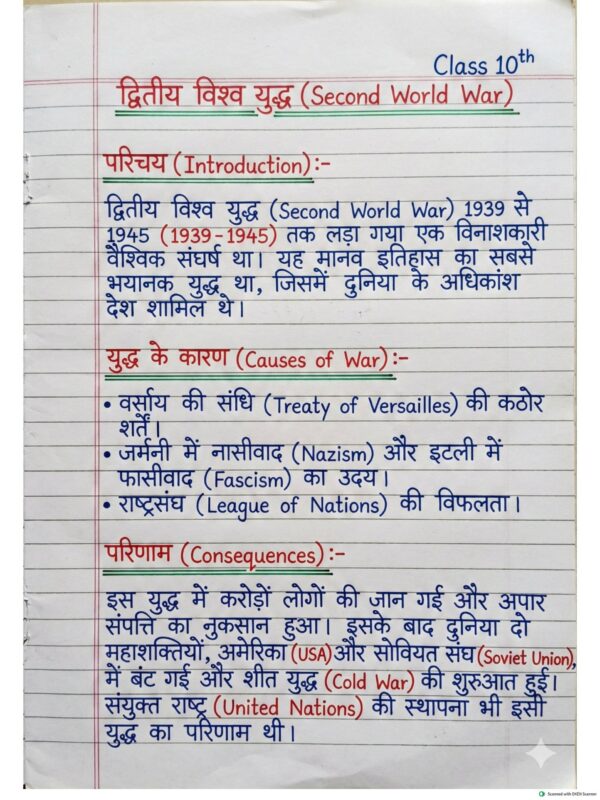 Class 10th
द्वितीय विश्व युद्ध (Second World War)
परिचय (Introduction):-
द्वितीय विश्व युद्ध (Second World War) 1939 से
1945 (1939-1945) तक लड़ा गया एक विनाशकारी
वैश्विक संघर्ष था। यह मानव इतिहास का सबसे
भयानक युद्ध था, जिसमें दुनिया के अधिकांश
देश शामिल थे।
युद्ध के कारण (Causes of War):-
• वर्साय की संधि (Treaty of Versailles) की कठोर
शर्तें।
• जर्मनी में नासीवाद (Nazism) और इटली में
फासीवाद (Fascism) का उदय।
• राष्ट्रसंघ (League of Nations) की विफलता।
परिणाम (Consequences):-
इस युद्ध में करोड़ों लोगों की जान गई और अपार
संपत्ति का नुकसान हुआ। इसके बाद दुनिया दो
महाशक्तियों, अमेरिका (USA) और सोवियत संघ (Soviet Union),
में बंट गई और शीत युद्ध (Cold War) की शुरुआत हुई।
संयुक्त राष्ट्र (United Nations) की स्थापना भी इसी
युद्ध का परिणाम थी।
Scanned with OKEN Scanner